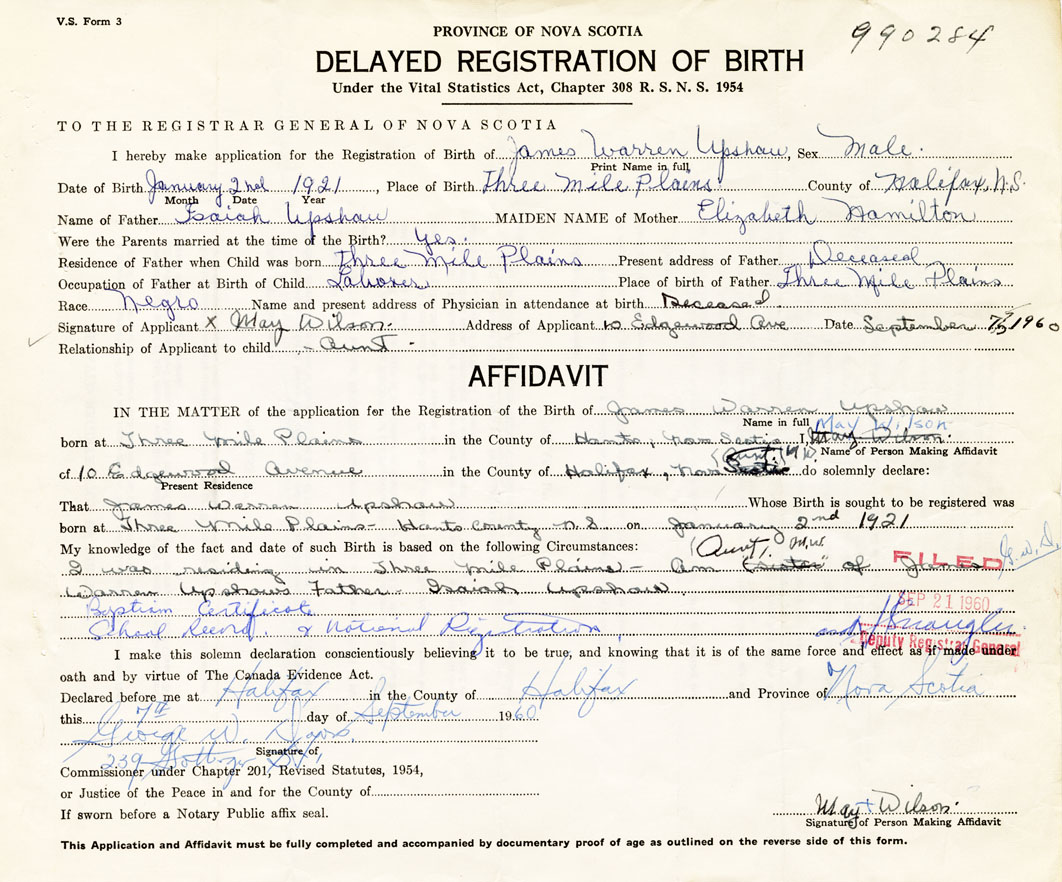 V.S. Form 3
990284
PROVINCE OF NOVA SCOTIA
DELAYED REGISTRATION OF BIRTH
Under the Vital Statistics Act, Chapter 308 R. S. N. S. 1954
TO THE REGISTRAR GENERAL OF NOVA SCOTIA
I hereby make application for the Registration of Birth of James Warren Upshaw, Sex Male.
Print Name in full
Date of Birth January 2nd 1921, Place of Birth Three Mile Plains County of Halifax, N.S.
Month Date Year
Name of Father Isaiah Upshaw MAIDEN NAME of Mother Elizabeth Hamilton
Were the Parents married at the time of the Birth? Yes.
Residence of Father when Child was born Three Mile Plains Present address of Father Deceased
Occupation of Father at Birth of Child Laborer Place of birth of Father Three Mile Plains
Race Negro Name and present address of Physician in attendance at birth Deceased
Signature of Applicant X May Wilson. Address of Applicant 10 Edgewood Ave Date September 7th 1960
Relationship of Applicant to child - Aunt -
AFFIDAVIT
IN THE MATTER of the application for the Registration of the Birth of James Warren Upshaw
Name in full May Wilson
born at Three Mile Plains in the County of Hants, Nova Scotia I, May Wilson.
(Aunt) M.W. Name of Person Making Affidavit
of 10 Edgewood Avenue in the County of Halifax, Nova Scotia do solemnly declare:
Present Residence
That James Warren Upshaw Whose Birth is sought to be registered was
born at Three Mile Plains - Hants County N.S on January 2nd 1921
My knowledge of the fact and date of such Birth is based on the following Circumstances: (Aunt) M.W. G.W.D.
I was residing in Three Mile Plains - Am (sister) of James FILED
Warren Upshaw's Father - Isaiah Upshaw
Baptism Certificate SEP 21 1960
School Record, & National Registration,
Deputy Registrar General
I make this solemn declaration conscientiously believing it to be true, and knowing that it is of the same force and effect as if made under
oath and by virtue of The Canada Evidence Act.
Declared before me at Halifax in the County of Halifax and Province of Nova Scotia
this 7th day of September 1960
George W.
Signature of
239 Gottingen St,
Commissioner under Chapter 201, Revised Statutes, 1954,
or Justice of the Peace in and for the County of
If sworn before a Notary Public affix seal.
May + Wilson.
Signature of Person Making Affidavit
This Application and Affidavit must be fully completed and accompanied by documentary proof of age as outlined on the reverse side of this form.